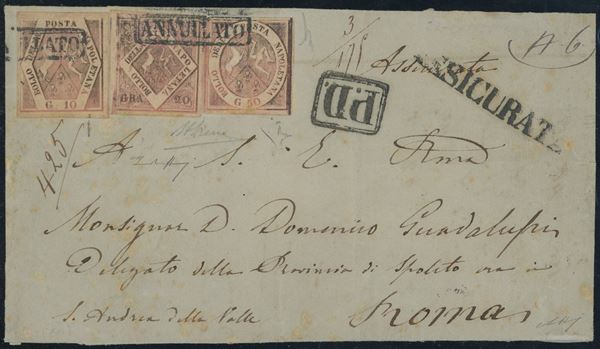 LLATO
ANNULLATO
POSTA NAPOLETANA
BOLLO DELLA
G. 10
BOLLO DELLA
NAPOLETANA
GRA 20
BOLLO DELLA POSTA NAPOLETANA
G 50
3
Assicurata
A 6
P.D.
ASSICURATA
425
A S. E. Rma
Monsignor D. Domenico Guadalupi
Delegato della Provincia di Spoleto ora in
S. Andrea della Valle
Roma